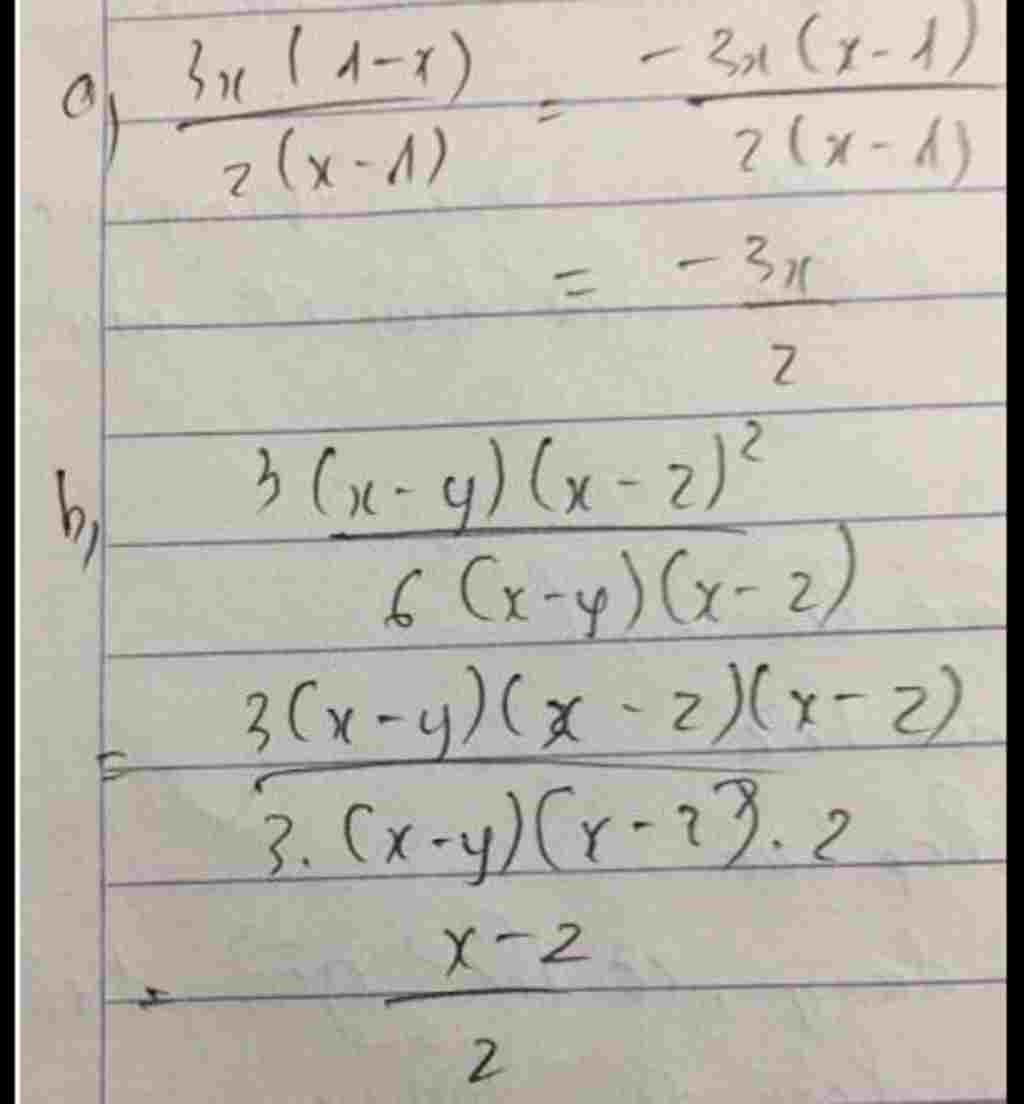 a) 3x(1-x) / 2(x-1) = -3x(x-1) / 2(x-1)
= -3x / 2
b) 3(x-y)(x-z)² / 6(x-y)(x-z)
= 3(x-y)(x-z)(x-z) / 3.(x-y)(x-z).2
= x-z / 2